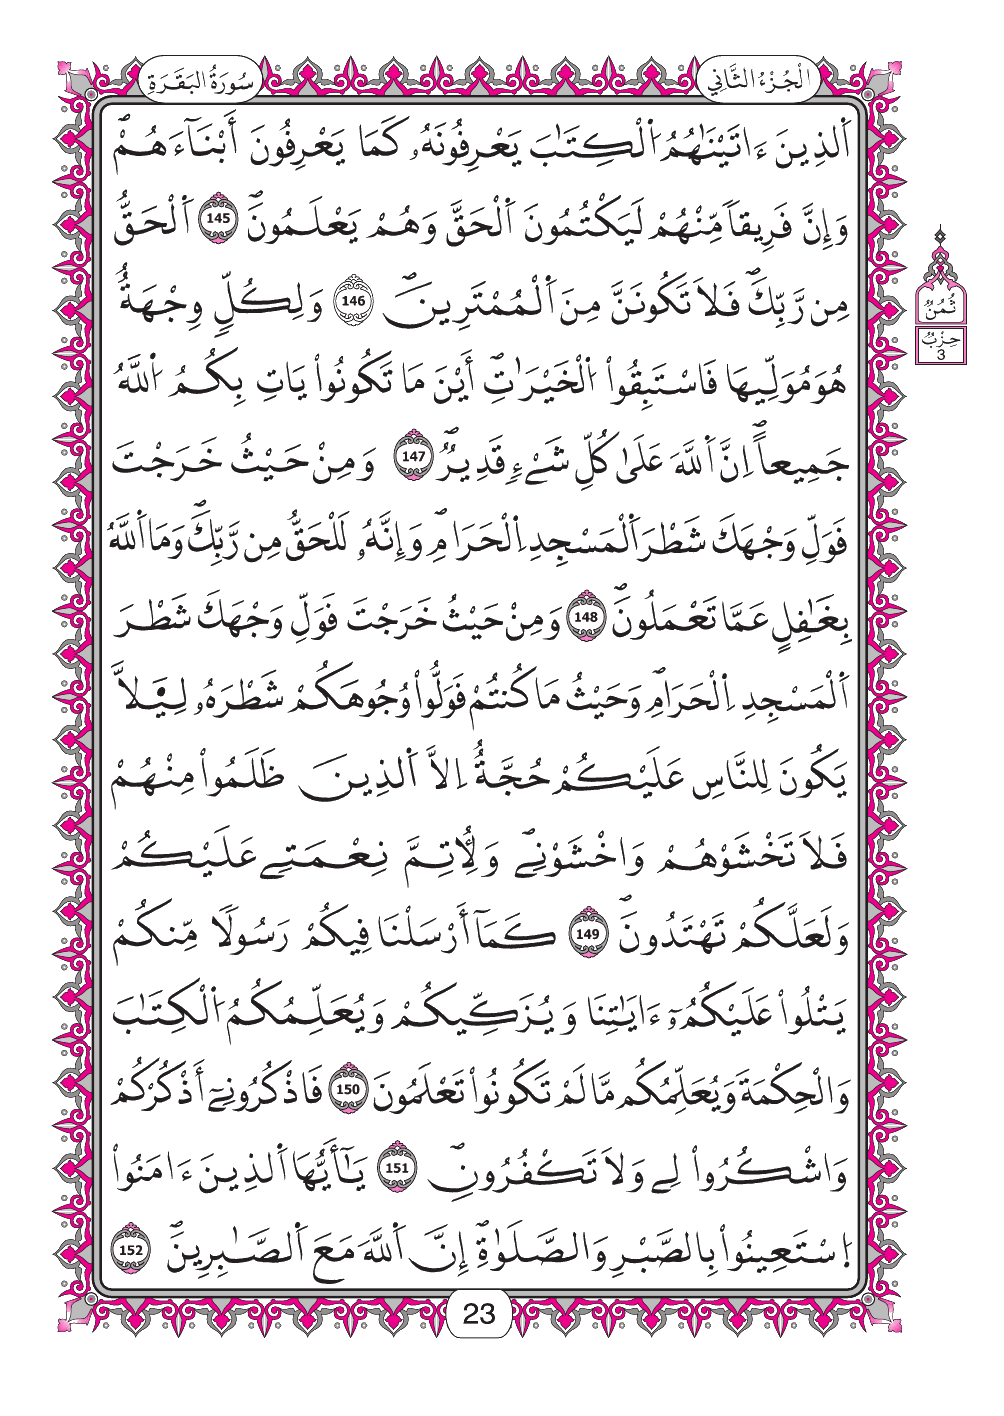 الْجُزْءُ الثَّانِي
سُورَةُ الْبَقَرَةِ
اَ۬لذِينَ ءَاتَيْنَٰهُمُ اُ۬لْكِتَٰبَ يَعْرِفُونَهُۥ كَمَا يَعْرِفُونَ أَبْنَآءَهُمْۖ
وَإِنَّ فَرِيقاٗ مِّنْهُمْ لَيَكْتُمُونَ اَ۬لْحَقَّ وَهُمْ يَعْلَمُونَۖ 145 اَ۬لْحَقُّ
مِن رَّبِّكَۖ فَلَا تَكُونَنَّ مِنَ اَ۬لْمُمْتَرِينَۖ 146 وَلِكُلّٖ وِجْهَةٌ
هُوَ مُوَلِّيهَا فَاسْتَبِقُواْ اُ۬لْخَيْرَٰتِۖ أَيْنَ مَا تَكُونُواْ يَاتِ بِكُمُ اُ۬للَّهُ
جَمِيعاًۖ اِنَّ اَ۬للَّهَ عَلَىٰ كُلِّ شَےْءٖ قَدِيرٞۖ 147 وَمِنْ حَيْثُ خَرَجْتَ
فَوَلِّ وَجْهَكَ شَطْرَ اَ۬لْمَسْجِدِ اِ۬لْحَرَامِۖ وَإِنَّهُۥ لَلْحَقُّ مِن رَّبِّكَۖ وَمَا اَ۬للَّهُ
بِغَٰفِلٍ عَمَّا تَعْمَلُونَۖ 148 وَمِنْ حَيْثُ خَرَجْتَ فَوَلِّ وَجْهَكَ شَطْرَ
اَ۬لْمَسْجِدِ اِ۬لْحَرَامِۖ وَحَيْثُ مَا كُنتُمْ فَوَلُّواْ وُجُوهَكُمْ شَطْرَهُۥ لِيَلَّا
يَكُونَ لِلنَّاسِ عَلَيْكُمْ حُجَّةٌ اِلَّا اَ۬لذِينَ ظَلَمُواْ مِنْهُمْ
فَلَا تَخْشَوْهُمْ وَاخْشَوْنِےۖ وَلِأُتِمَّ نِعْمَتِے عَلَيْكُمْ
وَلَعَلَّكُمْ تَهْتَدُونَۖ 149 كَمَآ أَرْسَلْنَا فِيكُمْ رَسُولاٗ مِّنكُمْ
يَتْلُواْ عَلَيْكُمُۥٓ ءَايَٰتِنَا وَيُزَكِّيكُمْ وَيُعَلِّمُكُمُ اُ۬لْكِتَٰبَ
وَالْحِكْمَةَ وَيُعَلِّمُكُم مَّا لَمْ تَكُونُواْ تَعْلَمُونَ 150 فَاذْكُرُونِےٓ أَذْكُرْكُمْ
وَاشْكُرُواْ لِے وَلَا تَكْفُرُونِۖ 151 يَٰٓأَيُّهَا اَ۬لذِينَ ءَامَنُواْ
اُ۪سْتَعِينُواْ بِالصَّبْرِ وَالصَّلَوٰةِۖ إِنَّ اَ۬للَّهَ مَعَ اَ۬لصَّٰبِرِينَۖ 152
ثُمُنُ
حِزْبُ
3
23